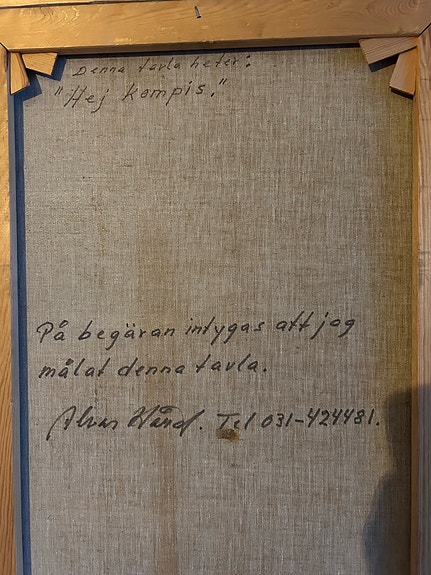 Denna tavla heter:
"Hej Kompis."
På begäran intygas att jag
målat denna tavla.
Alvar Hård. Tel 031-424481.